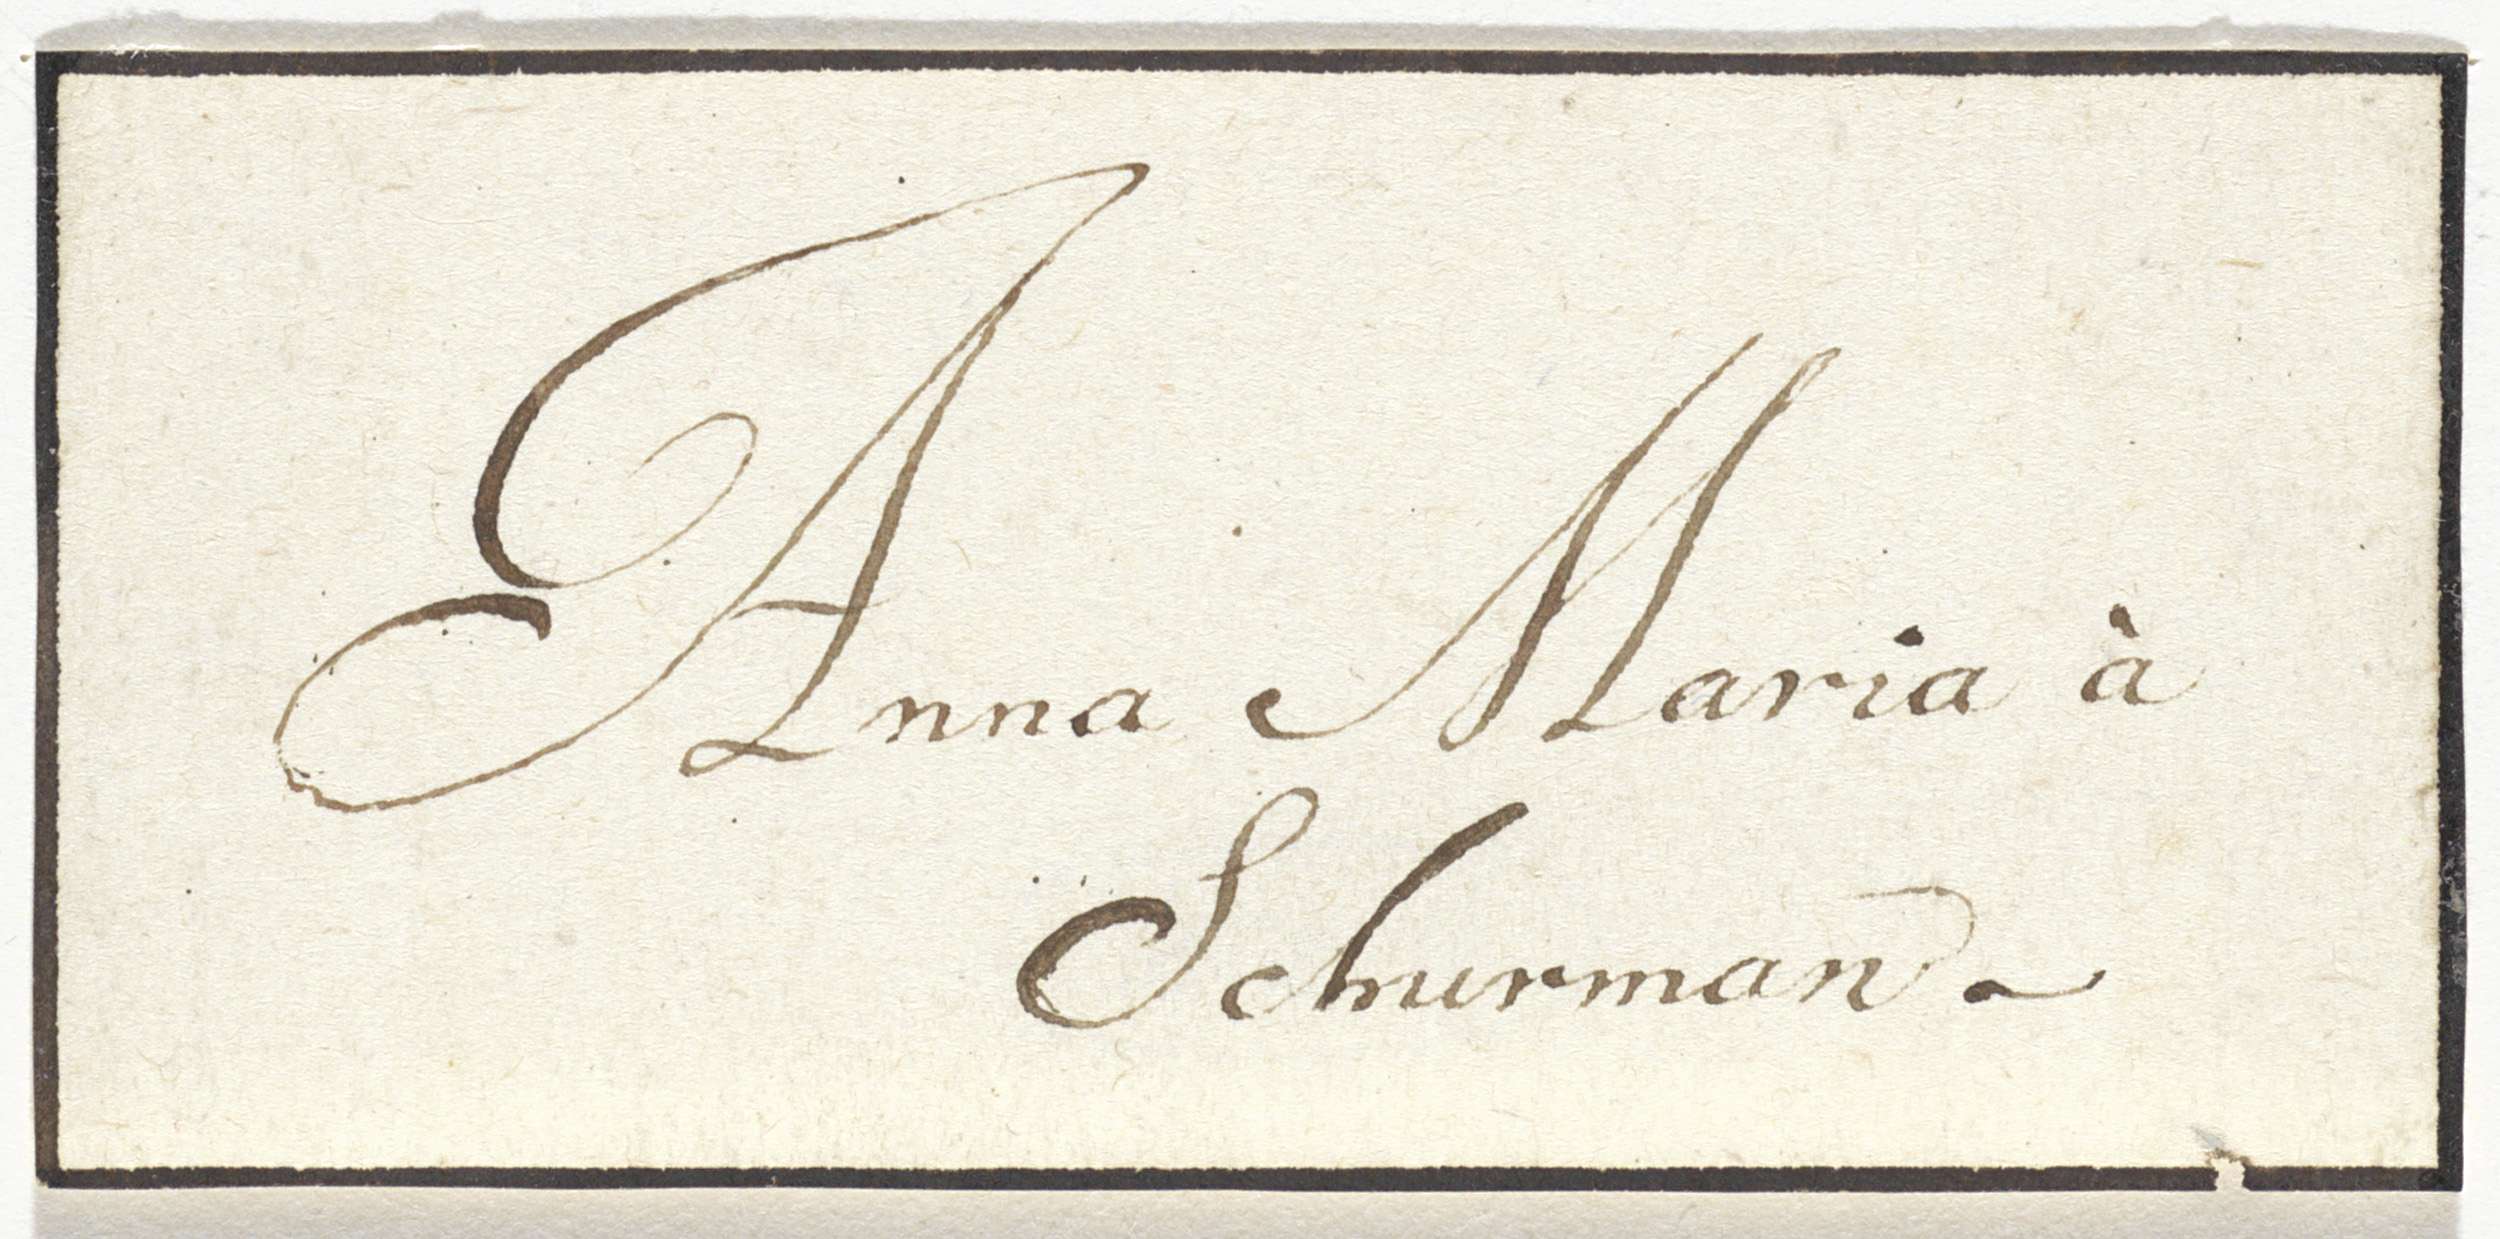 Anna Maria à
Schurman